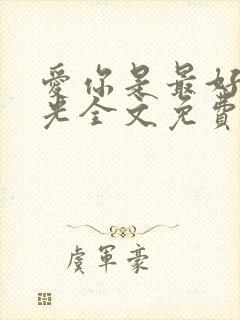 愛你是最好
光全文免費
虞軍豪